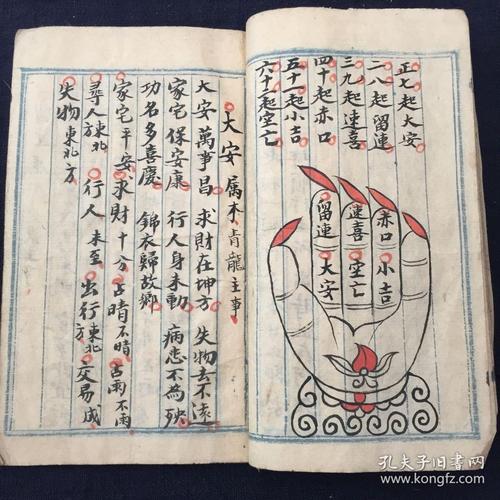 正七起大安
二八起留連
三九起速喜
四十起赤口
五十一起小吉
六十二起空亡
留連
速喜
赤口
大安
空亡
小吉
大安 属木 青龍主事
大安萬事昌 求財在坤方 失物去不遠
家宅保安康 行人身未動 病患不為殃
功名多喜慶 錦衣歸故鄉
家宅平安 求財十分 占晴不晴 占雨不雨
尋人東北方 行人未至 出行東北方 交易成
失物東北方
孔夫子旧書网
www.kongfz.com